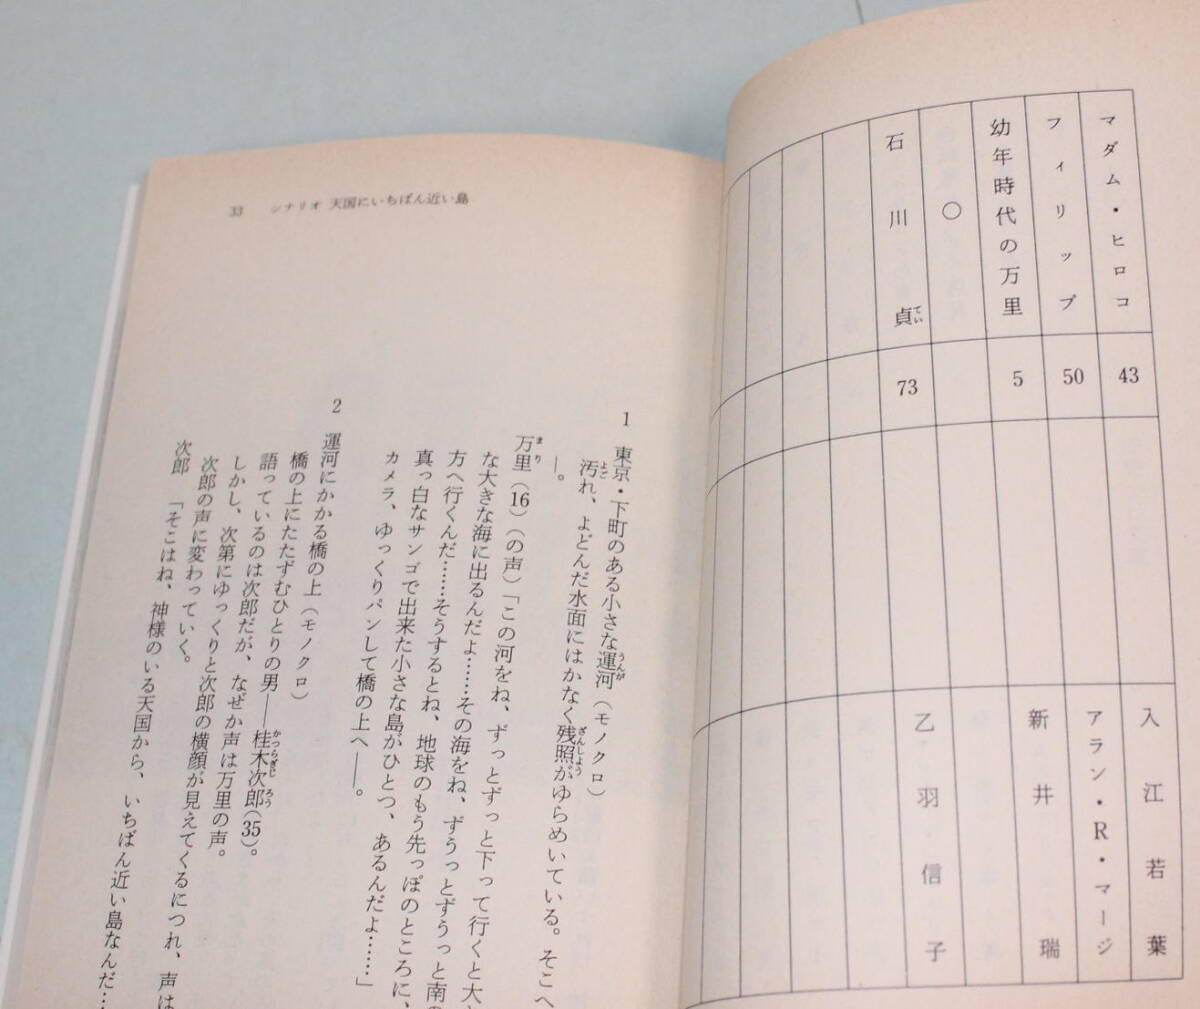 マダム・ヒロコ 43 入江若葉
フィリップ 50 アラン・R・マージ
幼年時代の万里 5 新井瑞
○
石川貞 73 乙羽信子
てい
33 シナリオ 天国にいちばん近い島
1 東京・下町のある小さな運河(モノクロ)
うんが
汚れ、よどんだ水面にはかなく残照がゆらめいている。そこへ
よご ざんしょう
―。
万里(16)(の声)「この河をね、ずっとずっと下って行くと大き
まり
な大きな海に出るんだよ……その海をね、ずうっとずうっと南の
方へ行くんだ……そうするとね、地球のもう先っぽのところに、
真っ白なサンゴで出来た小さな島がひとつ、あるんだよ……」
カメラ、ゆっくりパンして橋の上へ――。
2 運河にかかる橋の上(モノクロ)
橋の上にたたずむひとりの男――桂木次郎(35)。
かつらぎじろう
語っているのは次郎だが、なぜか声は万里の声。
しかし、次第にゆっくりと次郎の横顔が見えてくるにつれ、声は
次郎の声に変わっていく。
次郎 「そこはね、神様のいる天国から、いちばん近い島なんだ…